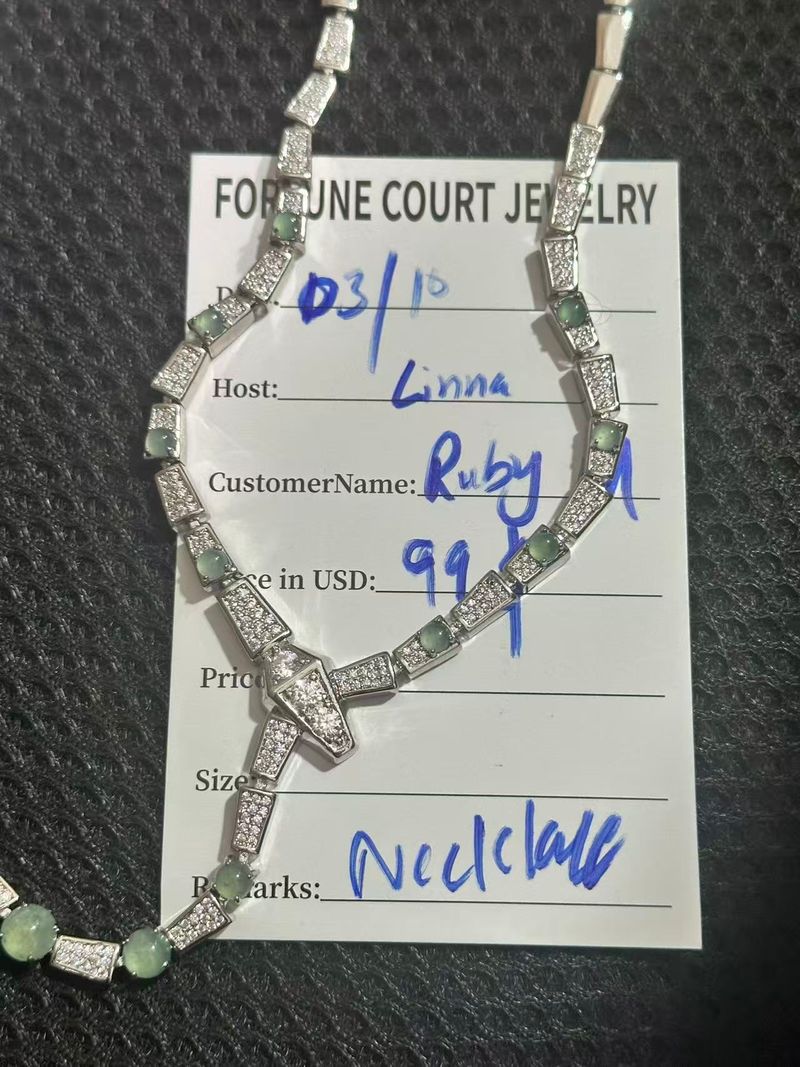 FORTUNE COURT JEWELRY
03/10
Host: Linna
CustomerName: Ruby M
ce in USD: 99$
Price
Size:
Remarks: Necklace